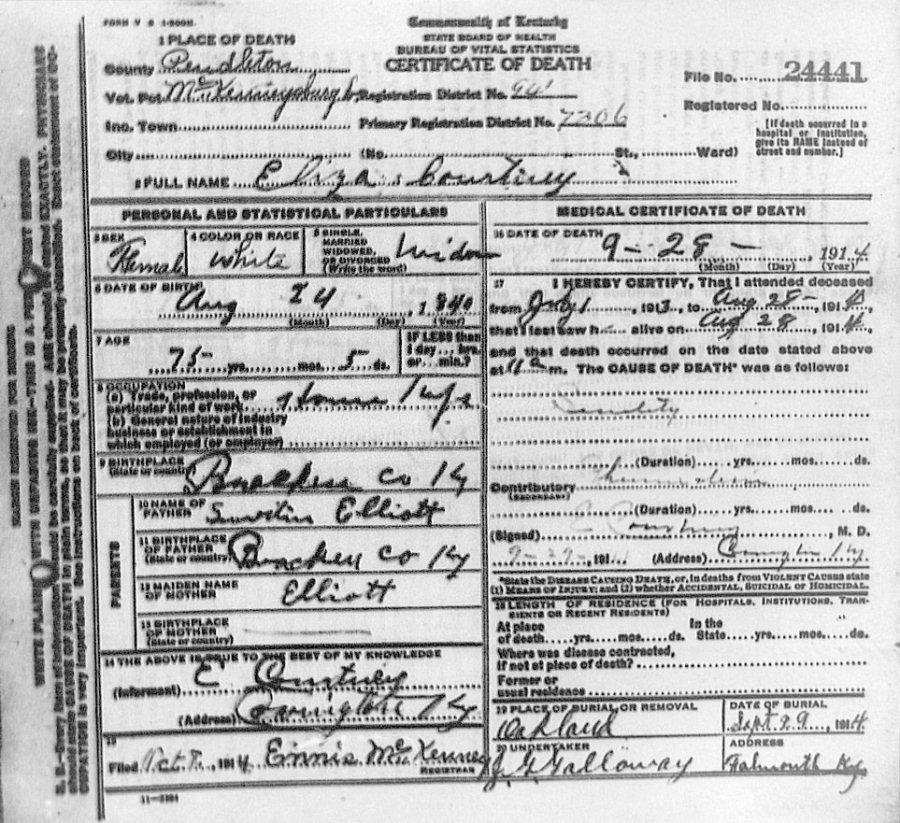 FORM V S 1-500M.
Commonwealth of Kentucky
STATE BOARD OF HEALTH
BUREAU OF VITAL STATISTICS
CERTIFICATE OF DEATH
1 PLACE OF DEATH
County Pendleton
Vot. Pct McKenneysburgh
Inc. Town
City
Registration District No. 941
Primary Registration District No. 7306
(No. St., Ward)
File No. 24441
Registered No.
[If death occurred in a hospital or institution, give its NAME instead of street and number.]
2 FULL NAME Eliza Courtney
PERSONAL AND STATISTICAL PARTICULARS
3 SEX Female
4 COLOR OR RACE White
5 SINGLE, MARRIED WIDOWED, OR DIVORCED (Write the word) Widow
6 DATE OF BIRTH Aug 24, 1840
(Month) (Day) (Year)
7 AGE 75 yrs. mos. 5 ds.
IF LESS than 1 day... hrs. or... min.?
8 OCCUPATION
(a) Trade, profession, or particular kind of work
(b) General nature of industry business or establishment in which employed (or employer)
9 BIRTHPLACE (State or country) Bracken Co Ky
PARENTS
10 NAME OF FATHER Elliott
11 BIRTHPLACE OF FATHER (State or country) Bracken Co Ky
12 MAIDEN NAME OF MOTHER Elliott
13 BIRTHPLACE OF MOTHER (State or country)
14 THE ABOVE IS TRUE TO THE BEST OF MY KNOWLEDGE
(Informant) E Courtney
(Address) Covington Ky
15
Filed Oct 7, 1914 Ennis McKenney
REGISTRAR
11-3184
MEDICAL CERTIFICATE OF DEATH
16 DATE OF DEATH 9-28-, 1914
(Month) (Day) (Year)
17 I HEREBY CERTIFY, That I attended deceased
from July 1 1913, to Aug 28- 191
that I last saw h alive on Aug 28, 1914,
and that death occurred on the date stated above
at m. The CAUSE OF DEATH* was as follows:
Senility
(Duration) yrs. mos. ds.
Contributory (SECONDARY) Rheumatism
(Duration) yrs. mos. ds.
(Signed) E Courtney, M. D.
9-29-, 191 (Address) Covington Ky.
*State the DISEASE CAUSING DEATH, or, in deaths from VIOLENT CAUSES state
(1) MEANS OF INJURY; and (2) whether ACCIDENTAL, SUICIDAL OR HOMICIDAL.
18 LENGTH OF RESIDENCE (FOR HOSPITALS, INSTITUTIONS, TRANSIENTS OR RECENT RESIDENTS)
At place of death yrs. mos. ds. In the State yrs. mos. ds.
Where was disease contracted, if not at place of death?
Former or usual residence
19 PLACE OF BURIAL OR REMOVAL Oakland
DATE OF BURIAL Sept. 29, 1914
20 UNDERTAKER J G Galloway
ADDRESS Falmouth Ky
MARGIN RESERVED FOR BINDING
WRITE PLAINLY WITH UNFADING INK—THIS IS A PERMANENT RECORD
N. B.—Every item of information should be carefully supplied. AGE should be stated EXACTLY. PHYSICIANS
should state CAUSE OF DEATH in plain terms, so that it may be properly classified. Exact statement of OC-
CUPATION is very important. See instructions on back of certificate.